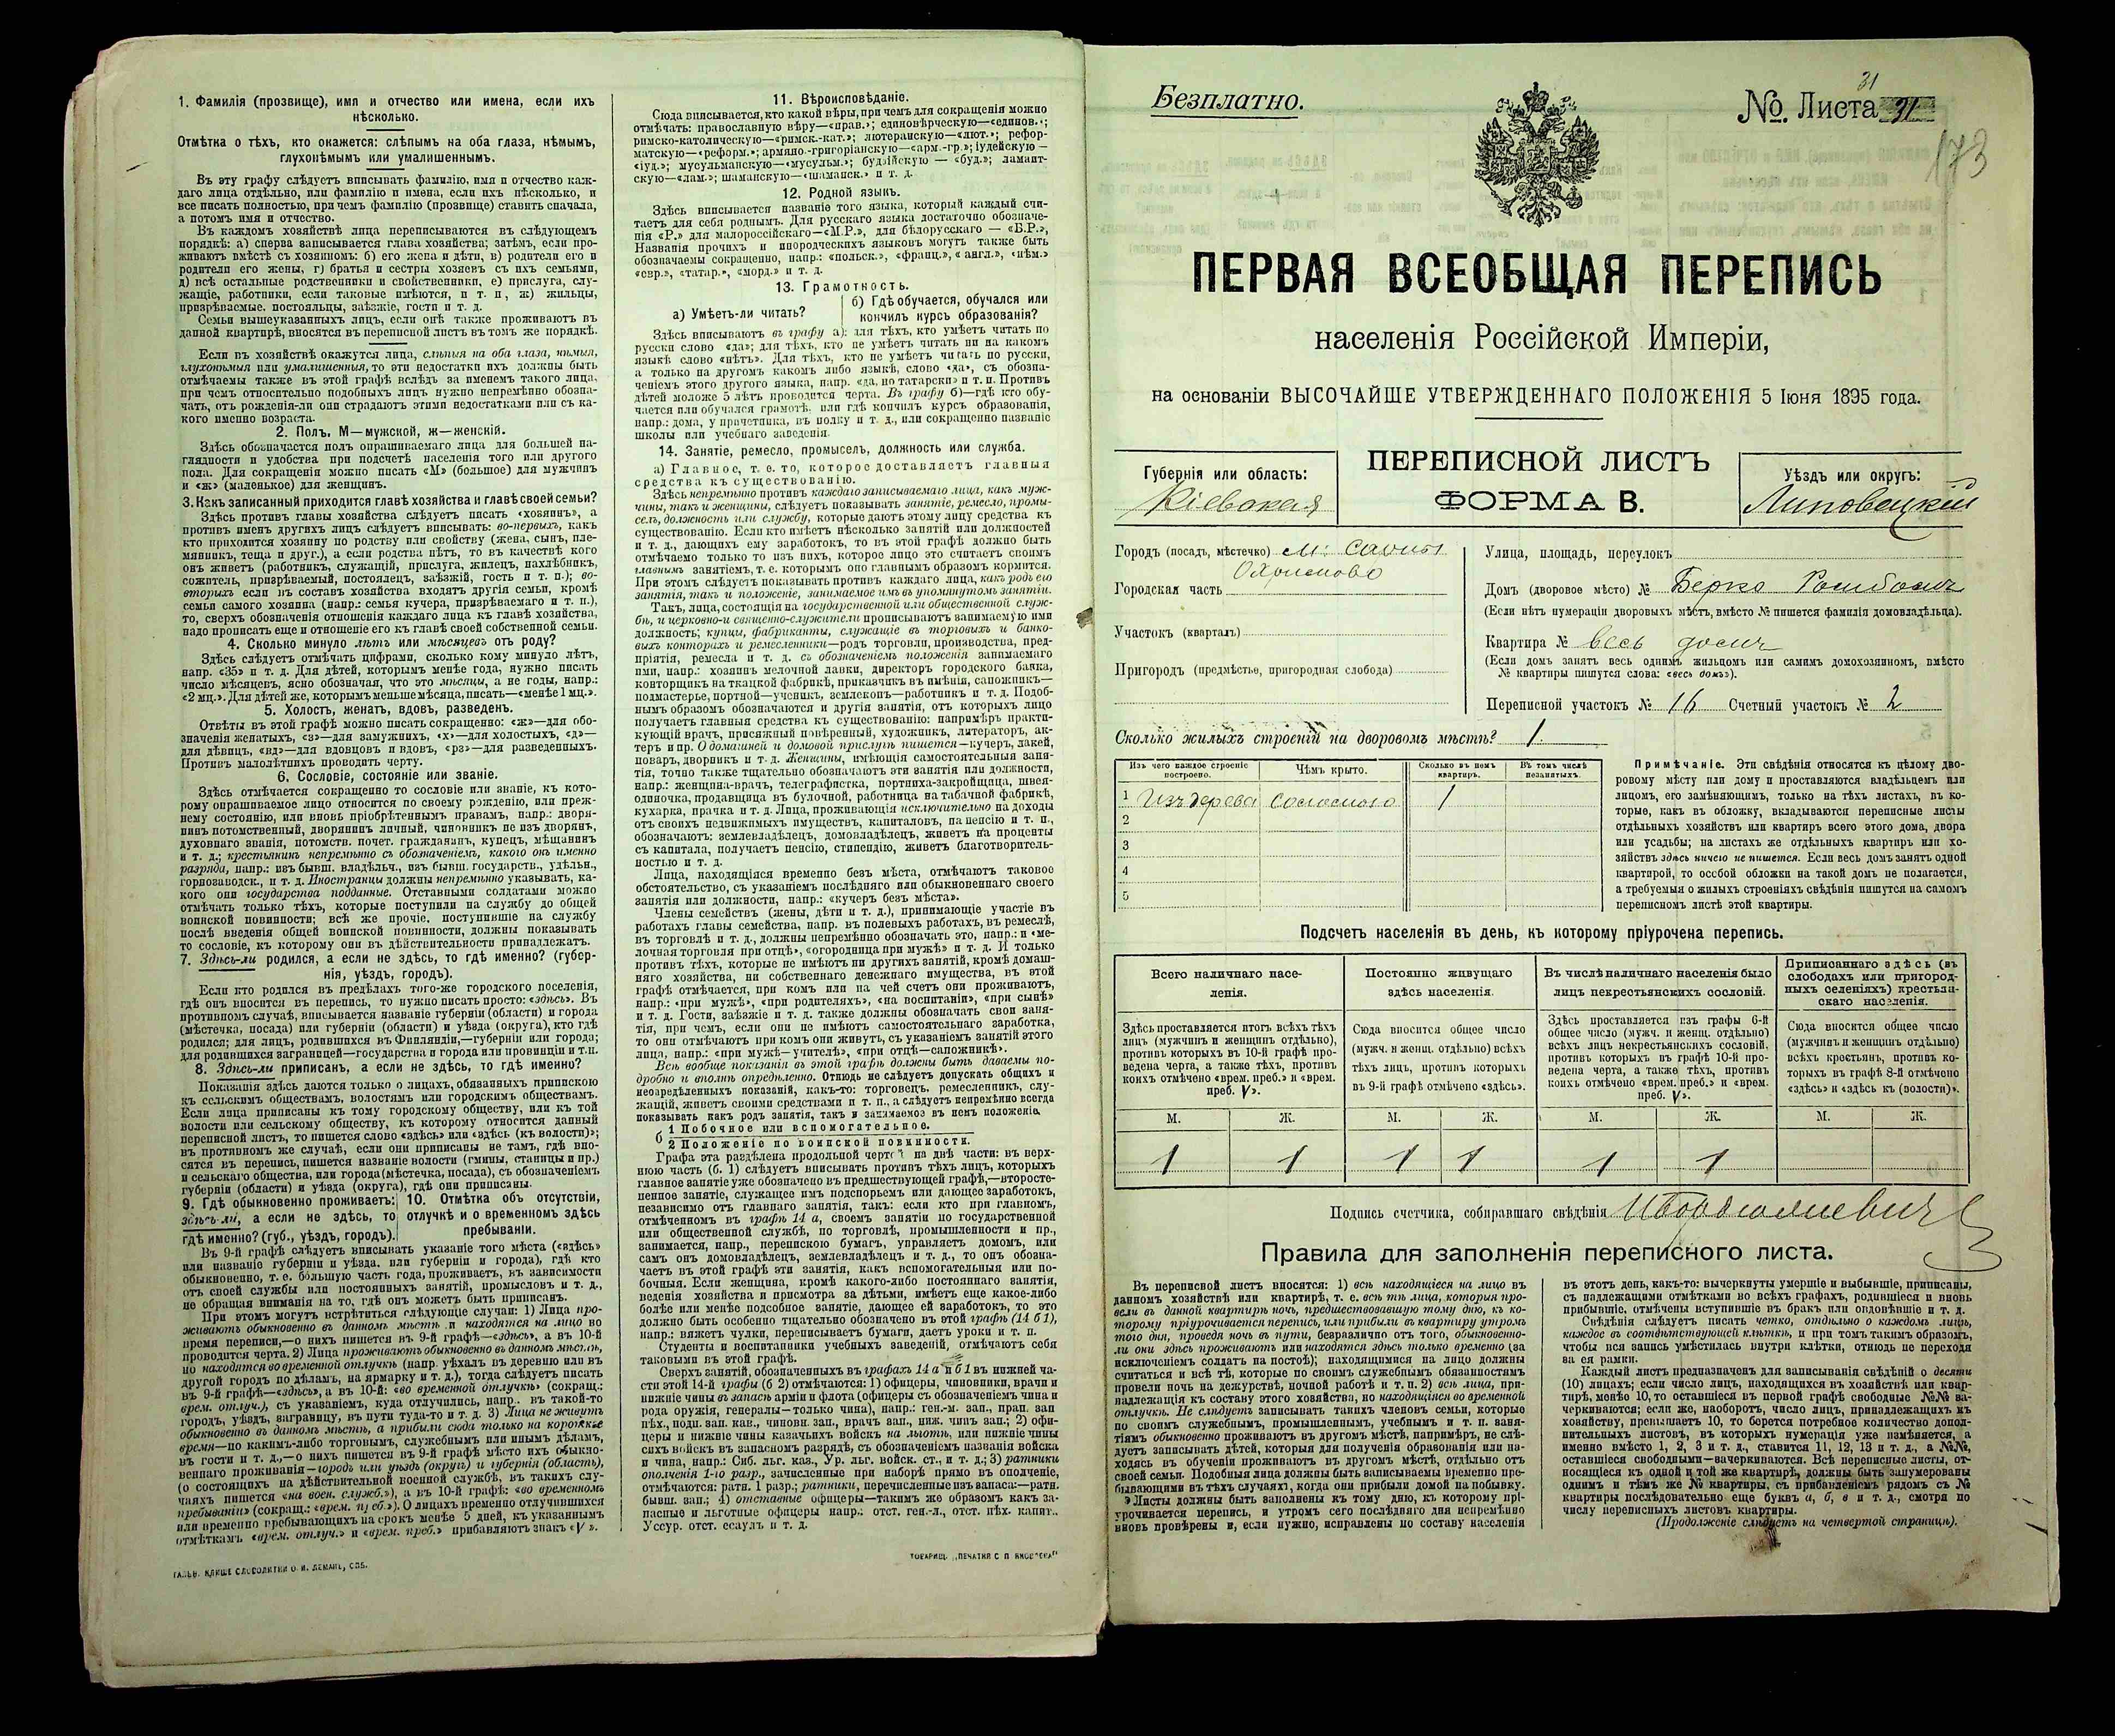 1. Фамилія (прозвище), имя и отчество или имена, если ихъ
нѣсколько.
Отмѣтка о тѣхъ, кто окажется: слѣпымъ на оба глаза, нѣмымъ,
глухонѣмымъ или умалишеннымъ.
Въ эту графу слѣдуетъ вписывать фамилію, имя и отчество каж-
даго лица отдѣльно, или фамилію и имена, если ихъ нѣсколько, и
все писать полностью, при чемъ фамилію (прозвище) ставить сначала,
а потомъ имя и отчество.
Въ каждомъ хозяйствѣ лица переписываются въ слѣдующемъ
порядкѣ: а) сперва записывается глава хозяйства; затѣмъ, если про-
живаютъ вмѣстѣ съ хозяиномъ: б) его жена и дѣти, в) родители его и
родители его жены, г) братья и сестры хозяевъ съ ихъ семьями,
д) всѣ остальные родственники и свойственники, е) прислуга, слу-
жащіе, работники, если таковые имѣются, и т. п., ж) жильцы,
призрѣваемые, постояльцы, заѣзжіе, гости и т. п.
Семьи вышеуказанныхъ лицъ, если онѣ также проживаютъ въ
данной квартирѣ, вносятся въ переписной листъ въ томъ же порядкѣ.
Если въ хозяйствѣ окажутся лица, слѣпыя на оба глаза, нѣмыя,
глухонѣмыя или умалишенныя, то эти недостатки ихъ должны быть
отмѣчаемы также въ этой графѣ вслѣдъ за именемъ такого лица,
при чемъ относительно подобныхъ лицъ нужно непремѣнно обозна-
чать, отъ рожденія-ли они страдаютъ этими недостатками или съ ка-
кого именно возраста.
2. Полъ. М—мужской, ж—женскій.
Здѣсь обозначается полъ опрашиваемаго лица для большей на-
глядности и удобства при подсчетѣ населенія того или другого
пола. Для сокращенія можно писать «М» (большое) для мужчинъ
и «ж» (маленькое) для женщинъ.
3. Какъ записанный приходится главѣ хозяйства и главѣ своей семьи?
Здѣсь противъ главы хозяйства слѣдуетъ писать «хозяинъ», а
противъ именъ другихъ лицъ слѣдуетъ вписывать: во-первыхъ, какъ
кто приходится хозяину по родству или свойству (жена, сынъ, пле-
мянникъ, теща и друг.), а если родства нѣтъ, то въ качествѣ кого
онъ живетъ (работникъ, служащій, прислуга, жилецъ, нахлѣбникъ,
сожитель, призрѣваемый, постоялецъ, заѣзжій, гость и т. п.); во-
вторыхъ если въ составъ хозяйства входятъ другія семьи, кромѣ
семьи самого хозяина (напр.: семья кучера, призрѣваемаго и т. п.),
то, сверхъ обозначенія отношенія каждаго лица къ главѣ хозяйства,
надо прописать еще и отношеніе его къ главѣ своей собственной семьи.
4. Сколько минуло лѣтъ или мѣсяцевъ отъ роду?
Здѣсь слѣдуетъ отмѣчать цифрами, сколько кому минуло лѣтъ,
напр. «35» и т. д. Для дѣтей, которымъ менѣе года, нужно писать
число мѣсяцевъ, ясно обозначая, что это мѣсяцы, а не годы, напр.:
«2 мц.». Для дѣтей же, которымъ меньше мѣсяца, писать—«менѣе 1 мц.».
5. Холостъ, женатъ, вдовъ, разведенъ.
Отвѣты въ этой графѣ можно писать сокращенно: «ж»—для обо-
значенія женатыхъ, «з»—для замужнихъ, «х»—для холостыхъ, «д»—
для дѣвицъ, «вд»—для вдовцовъ и вдовъ, «рз»—для разведенныхъ.
Противъ малолѣтнихъ проводить черту.
6. Сословіе, состояніе или званіе.
Здѣсь отмѣчается сокращенно то сословіе или званіе, къ кото-
рому опрашиваемое лицо относится по своему рожденію, или преж-
нему состоянію, или вновь пріобрѣтеннымъ правамъ, напр.: дворя-
нинъ потомственный, дворянинъ личный, чиновникъ не изъ дворянъ,
духовнаго званія, потомств. почет. гражданинъ, купецъ, мѣщанинъ
и т. д.; крестьянинъ непремѣнно съ обозначеніемъ, какого онъ именно
разряда, напр.: изъ бывш. владѣльч., изъ бывш. государств., удѣльн.,
горнозаводск., и т. д. Иностранцы должны непремѣнно указывать, ка-
кого они государства подданные. Отставными солдатами можно
отмѣчать только тѣхъ, которые поступили на службу до общей
воинской повинности; всѣ же прочіе, поступившіе на службу
послѣ введенія общей воинской повинности, должны показывать
то сословіе, къ которому они въ дѣйствительности принадлежатъ.
7. Здѣсь-ли родился, а если не здѣсь, то гдѣ именно? (губер-
нія, уѣздъ, городъ).
Если кто родился въ предѣлахъ того-же городского поселенія,
гдѣ онъ вносится въ перепись, то нужно писать просто: «здѣсь». Въ
противномъ случаѣ, вписывается названіе губерніи (области) и города
(мѣстечка, посада) или губерніи (области) и уѣзда (округа), кто гдѣ
родился; для лицъ, родившихся въ Финляндіи,—губерніи или города;
для родившихся заграницей—государства и города или провинціи и т.п.
8. Здѣсь-ли приписанъ, а если не здѣсь, то гдѣ именно?
Показанія здѣсь даются только о лицахъ, обязанныхъ припискою
къ сельскимъ обществамъ, волостямъ или городскимъ обществамъ.
Если лица приписаны къ тому городскому обществу, или къ той
волости или сельскому обществу, къ которому относится данный
переписной листъ, то пишется слово «здѣсь» или «здѣсь (къ волости)»;
въ противномъ же случаѣ, если они приписаны не тамъ, гдѣ вно-
сятся въ перепись, пишется названіе волости (гмины, станицы и пр.)
и сельскаго общества, или города (мѣстечка, посада), съ обозначеніемъ
губерніи (области) и уѣзда (округа), гдѣ они приписаны.
9. Гдѣ обыкновенно проживаетъ:
здѣсь-ли, а если не здѣсь, то
гдѣ именно? (губ., уѣздъ, городъ).
10. Отмѣтка объ отсутствіи,
отлучкѣ и о временномъ здѣсь
пребываніи.
Въ 9-й графѣ слѣдуетъ вписывать указаніе того мѣста («здѣсь»
или названіе губерніи и уѣзда, или губерніи и города), гдѣ кто
обыкновенно, т. е. бо́льшую часть года, проживаетъ, въ зависимости
отъ своей службы или постоянныхъ занятій, промысловъ и т. д.,
не обращая вниманія на то, гдѣ онъ можетъ быть приписанъ.
При этомъ могутъ встрѣтиться слѣдующіе случаи: 1) Лица про-
живаютъ обыкновенно въ данномъ мѣстѣ и находятся на лицо во
время переписи,—о нихъ пишется въ 9-й графѣ—«здѣсь», а въ 10-й
проводится черта. 2) Лица проживаютъ обыкновенно въ данномъ мѣстѣ,
но находятся во временной отлучкѣ (напр. уѣхалъ въ деревню или въ
другой городъ по дѣламъ, на ярмарку и т. д.), тогда слѣдуетъ писать
въ 9-й графѣ—«здѣсь», а въ 10-й: «во временной отлучкѣ» (сокращ.:
врем. отлуч.), съ указаніемъ, куда отлучились, напр. въ такой-то
городъ, уѣздъ, заграницу, въ пути туда-то и т. д. 3) Лица не живутъ
обыкновенно въ данномъ мѣстѣ, а прибыли сюда только на короткое
время—по какимъ-либо торговымъ, служебнымъ или инымъ дѣламъ,
въ гости и т. д.,—о нихъ пишется въ 9-й графѣ мѣсто ихъ обыкно-
веннаго проживанія—городъ или уѣздъ (округъ) и губернія (область),
(о состоящихъ на дѣйствительной военной службѣ, въ такихъ слу-
чаяхъ пишется «на воен. служб.»), а въ 10-й графѣ: «во временномъ
пребываніи» (сокращ.: «врем. преб.»). О лицахъ временно отлучившихся
или временно пребывающихъ на срокъ менѣе 5 дней, къ указаннымъ
отмѣткамъ «врем. отлуч.» и «врем. преб.» прибавляютъ знакъ «V».
11. Вѣроисповѣданіе.
Сюда вписывается, кто какой вѣры, при чемъ для сокращенія можно
отмѣчать: православную вѣру—«прав.»; единовѣрческую—«единов.»;
римско-католическую—«римск.-кат.»; лютеранскую—«лют.»; рефор-
матскую—«реформ.»; армяно.-григоріанскую—«арм.-гр.»; іудейскую—
«іуд.»; мусульманскую—«мусульм.»; буддійскую — «буд.»; ламаит-
скую—«лам.»; шаманскую—«шаманск.» и т. д.
12. Родной языкъ.
Здѣсь вписывается названіе того языка, который каждый счи-
таетъ для себя роднымъ. Для русскаго языка достаточно обозначе-
нія «Р.» для малороссійскаго—«М.Р.», для бѣлорусскаго — «Б.Р.»,
Названія прочихъ и инородческихъ языковъ могутъ также быть
обозначаемы сокращенно, напр.: «польск.», «франц.», «англ.», «нѣм.»
«евр.», «татар.», «морд.» и т. д.
13. Грамотность.
а) Умѣетъ-ли читать?
б) Гдѣ обучается, обучался или
кончилъ курсъ образованія?
Здѣсь вписываютъ въ графу а): для тѣхъ, кто умѣетъ читать по
русски слово «да»; для тѣхъ, кто не умѣетъ читать ни на какомъ
языкѣ слово «нѣтъ». Для тѣхъ, кто не умѣетъ читать по русски,
а только на другомъ какомъ либо языкѣ, слово «да», съ обозна-
ченіемъ этого другого языка, напр. «да, по татарски» и т. п. Противъ
дѣтей моложе 5 лѣтъ проводится черта. Въ графу б)—гдѣ кто обу-
чается или обучался грамотѣ, или гдѣ кончилъ курсъ образованія,
напр.: дома, у причетника, въ полку и т. д., или сокращенно названіе
школы или учебнаго заведенія.
14. Занятіе, ремесло, промыселъ, должность или служба.
а) Главное, т. е. то, которое доставляетъ главныя
средства къ существованію.
Здѣсь непремѣнно противъ каждаго записываемаго лица, какъ муж-
чины, такъ и женщины, слѣдуетъ показывать занятіе, ремесло, промы-
селъ, должность или службу, которые даютъ этому лицу средства къ
существованію. Если кто имѣетъ нѣсколько занятій или должностей
и т. д., дающихъ ему заработокъ, то въ этой графѣ должно быть
отмѣчаемо только то изъ нихъ, которое лицо это считаетъ своимъ
главнымъ занятіемъ, т. е. которымъ оно главнымъ образомъ кормится.
При этомъ слѣдуетъ показывать противъ каждаго лица, какъ родъ его
занятія, такъ и положеніе, занимаемое имъ въ упомянутомъ занятіи.
Такъ, лица, состоящія на государственной или общественной служ-
бѣ, и церковно-и священно-служители прописываютъ занимаемую ими
должность; купцы, фабриканты, служащіе въ торговыхъ и банко-
выхъ конторахъ и ремесленники—родъ торговли, производства, пред-
пріятія, ремесла и т. д. съ обозначеніемъ положенія занимаемаго
ими, напр.: хозяинъ мелочной лавки, директоръ городского банка,
конторщикъ на ткацкой фабрикѣ, приказчикъ въ имѣніи, сапожникъ—
подмастерье, портной—ученикъ, землекопъ—работникъ и т. д. Подоб-
нымъ образомъ обозначаются и другія занятія, отъ которыхъ лицо
получаетъ главныя средства къ существованію: напримѣръ практи-
кующій врачъ, присяжный повѣренный, художникъ, литераторъ, ак-
теръ и пр. О домашней и домовой прислугѣ пишется—кучеръ, лакей,
поваръ, дворникъ и т. д. Женщины, имѣющія самостоятельныя заня-
тія, точно также тщательно обозначаютъ эти занятія или должности,
напр.: женщина-врачъ, телеграфистка, портниха-закройщица, швея-
одиночка, продавщица въ булочной, работница на табачной фабрикѣ,
кухарка, прачка и т. д. Лица, проживающія исключительно на доходы
отъ своихъ недвижимыхъ имуществъ, капиталовъ, на пенсію и т. п.,
обозначаютъ: землевладѣлецъ, домовладѣлецъ, живетъ на проценты
съ капитала, получаетъ пенсію, стипендію, живетъ благотворитель-
ностью и т. д.
Лица, находящіяся временно безъ мѣста, отмѣчаютъ таковое
обстоятельство, съ указаніемъ послѣдняго или обыкновеннаго своего
занятія или должности, напр.: «кучеръ безъ мѣста».
Члены семействъ (жены, дѣти и т. д.), принимающіе участіе въ
работахъ главы семейства, напр. въ полевыхъ работахъ, въ ремеслѣ,
въ торговлѣ и т. д., должны непремѣнно обозначать это, напр.: «ме-
лочная торговля при отцѣ», «огородница при мужѣ» и т. д. И только
противъ тѣхъ, которые не имѣютъ ни другихъ занятій, кромѣ домаш-
няго хозяйства, ни собственнаго денежнаго имущества, въ этой
графѣ отмѣчается, при комъ или на чей счетъ они проживаютъ,
напр.: «при мужѣ», «при родителяхъ», «на воспитаніи», «при сынѣ»
и т. д. Гости, заѣзжіе и т. д. также должны обозначать свои заня-
тія, при чемъ, если они не имѣютъ самостоятельнаго заработка,
то они отмѣчаютъ при комъ они живутъ, съ указаніемъ занятій этого
лица, напр.: «при мужѣ—учителѣ», «при отцѣ—сапожникѣ».
Всѣ вообще показанія въ этой графѣ должны быть даваемы по-
дробно и вполнѣ опредѣленно. Отнюдь не слѣдуетъ допускать общихъ и
неопредѣленныхъ показаній, какъ-то: торговецъ, ремесленникъ, слу-
жащій, живетъ своими средствами и т. п., а слѣдуетъ непремѣнно всегда
показывать какъ родъ занятія, такъ и занимаемое въ немъ положеніе.
б 1 Побочное или вспомогательное.
2 Положеніе по воинской повинности.
Графа эта раздѣлена продольной чертой на двѣ части: въ верх-
нюю часть (б. 1) слѣдуетъ вписывать противъ тѣхъ лицъ, которыхъ
главное занятіе уже обозначено въ предшествующей графѣ,—второсте-
пенное занятіе, служащее имъ подспорьемъ или дающее заработокъ,
независимо отъ главнаго занятія, такъ: если кто при главномъ,
отмѣченномъ въ графѣ 14 а, своемъ занятіи по государственной
или общественной службѣ, по торговлѣ, промышленности и пр.,
занимается, напр., перепискою бумагъ, управляетъ домомъ, или
самъ онъ домовладѣлецъ, землевладѣлецъ и т. д., то онъ обозна-
чаетъ въ этой графѣ эти занятія, какъ вспомогательныя или по-
бочныя. Если женщина, кромѣ какого-либо постояннаго занятія,
веденія хозяйства и присмотра за дѣтьми, имѣетъ еще какое-либо
болѣе или менѣе подсобное занятіе, дающее ей заработокъ, то это
должно быть особенно тщательно обозначено въ этой графѣ (14 б 1),
напр.: вяжетъ чулки, переписываетъ бумаги, даетъ уроки и т. п.
Студенты и воспитанники учебныхъ заведеній, отмѣчаютъ себя
таковыми въ этой графѣ.
Сверхъ занятій, обозначенныхъ въ графахъ 14 а и б 1 въ нижней ча-
сти этой 14-й графы (б 2) отмѣчаются: 1) офицеры, чиновники, врачи и
нижніе чины въ запасѣ арміи и флота (офицеры съ обозначеніемъ чина и
рода оружія, генералы—только чина), напр.: ген.-м. зап., прап. зап
пѣх., подп. зап. кав., чиновн. зап., врачъ зап., ниж. чинъ зап.; 2) офи-
церы и нижніе чины казачьихъ войскъ на льготѣ, или нижніе чины
сихъ войскъ въ запасномъ разрядѣ, съ обозначеніемъ названія войска
и чина, напр.: Сиб. льг. каз., Ур. льг. войск. ст., и т. д.; 3) ратники
ополченія 1-го разр., зачисленные при наборѣ прямо въ ополченіе,
отмѣчаются: ратн. 1 разр.; ратники, перечисленные изъ запаса:—ратн.
бывш. зап.; 4) отставные офицеры—такимъ же образомъ какъ за-
пасные и льготные офицеры напр.: отст. ген.-л., отст. пѣх. капит.,
Уссур. отст. есаулъ и т. д.
Безплатно.
31
№ Листа 31
173
ПЕРВАЯ ВСЕОБЩАЯ ПЕРЕПИСЬ
населенія Россійской Имперіи,
на основаніи ВЫСОЧАЙШЕ УТВЕРЖДЕННАГО ПОЛОЖЕНІЯ 5 Іюня 1895 года.
ПЕРЕПИСНОЙ ЛИСТЪ
ФОРМА В.
Губернія или область:
Кіевская
Уѣздъ или округъ:
Липовецкій
Городъ (посадъ, мѣстечко) м:
Городская часть
Участокъ (кварталъ)
Пригородъ (предмѣстье, пригородная слобода)
Улица, площадь, переулокъ
Домъ (дворовое мѣсто) № Берко
(Если нѣтъ нумераціи дворовыхъ мѣстъ, вмѣсто № пишется фамилія домовладѣльца).
Квартира № весь домъ
(Если домъ занятъ весь однимъ жильцомъ или самимъ домохозяиномъ, вмѣсто
№ квартиры пишутся слова: «весь домъ»).
Переписной участокъ № 16 Счетный участокъ № 2
Сколько жилыхъ строеній на дворовомъ мѣстѣ? 1.
Изъ чего каждое строеніе построено. Чѣмъ крыто. Сколько въ немъ квартиръ. Въ томъ числѣ незанятыхъ.
1 Изъ дерева соломою 1
2
3
4
5
Примѣчаніе. Эти свѣдѣнія относятся къ цѣлому дво-
ровому мѣсту или дому и проставляются владѣльцемъ или
лицомъ, его замѣняющимъ, только на тѣхъ листахъ, въ ко-
торые, какъ въ обложку, вкладываются переписные листы
отдѣльныхъ хозяйствъ или квартиръ всего этого дома, двора
или усадьбы; на листахъ же отдѣльныхъ квартиръ или хо-
зяйствъ здѣсь ничего не пишется. Если весь домъ занятъ одной
квартирой, то особой обложки на такой домъ не полагается,
а требуемыя о жилыхъ строеніяхъ свѣдѣнія пишутся на самомъ
переписномъ листѣ этой квартиры.
Подсчетъ населенія въ день, къ которому пріурочена перепись.
Всего наличнаго насе-
ленія.
Здѣсь проставляется итогъ всѣхъ тѣхъ
лицъ (мужчинъ и женщинъ отдѣльно),
противъ которыхъ въ 10-й графѣ про-
ведена черта, а также тѣхъ, противъ
коихъ отмѣчено «врем. преб.» и «врем.
преб. V».
Постоянно живущаго
здѣсь населенія.
Сюда вносится общее число
(мужч. и женщ. отдѣльно) всѣхъ
тѣхъ лицъ, противъ которыхъ
въ 9-й графѣ отмѣчено «здѣсь».
Въ числѣ наличнаго населенія было
лицъ некрестьянскихъ сословій.
Здѣсь проставляется изъ графы 6-й
общее число (мужч. и женщ. отдѣльно)
всѣхъ лицъ некрестьянскихъ сословій,
противъ которыхъ въ графѣ 10-й про-
ведена черта, а также тѣхъ, противъ
коихъ отмѣчено «врем. преб.» и «врем.
преб. V».
Приписаннаго здѣсь (въ
слободахъ или пригород-
ныхъ селеніяхъ) крестьян-
скаго населенія.
Сюда вносится общее число
(мужчинъ и женщинъ отдѣльно)
всѣхъ крестьянъ, противъ ко-
торыхъ въ графѣ 8-й отмѣчено
«здѣсь» и «здѣсь къ (волости)».
М. Ж. М. Ж. М. Ж. М. Ж.
1 1 1 1 1 1
Подпись счетчика, собиравшаго свѣдѣнія
Правила для заполненія переписного листа.
Въ переписной листъ вносятся: 1) всѣ находящіеся на лицо въ
данномъ хозяйствѣ или квартирѣ, т. е. всѣ тѣ лица, которыя про-
вели въ данной квартирѣ ночь, предшествовавшую тому дню, къ ко-
торому пріурочивается перепись, или прибыли въ квартиру утромъ
того дня, проведя ночь въ пути, безразлично отъ того, обыкновенно-
ли они здѣсь проживаютъ или находятся здѣсь только временно (за
исключеніемъ солдатъ на постоѣ); находящимися на лицо должны
считаться и всѣ тѣ, которые по своимъ служебнымъ обязанностямъ
провели ночь на дежурствѣ, ночной работѣ и т. п. 2) всѣ лица, при-
надлежащія къ составу этого хозяйства, но находящіяся во временной
отлучкѣ. Не слѣдуетъ записывать такихъ членовъ семьи, которые
по своимъ служебнымъ, промышленнымъ, учебнымъ и т. п. заня-
тіямъ обыкновенно проживаютъ въ другомъ мѣстѣ, напримѣръ, не слѣ-
дуетъ записывать дѣтей, которыя для полученія образованія или на-
ходясь въ обученіи проживаютъ въ другомъ мѣстѣ, отдѣльно отъ
своей семьи. Подобныя лица должны быть записываемы временно пре-
бывающими въ тѣхъ случаяхъ, когда они прибыли домой на побывку.
Листы должны быть заполнены къ тому дню, къ которому прі-
урочивается перепись, и утромъ сего послѣдняго дня непремѣнно
вновь провѣрены и, если нужно, исправлены по составу населенія
въ этотъ день, какъ-то: вычеркнуты умершіе и выбывшіе, приписаны,
съ надлежащими отмѣтками во всѣхъ графахъ, родившіеся и вновь
прибывшіе, отмѣчены вступившіе въ бракъ или овдовѣвшіе и т. д.
Свѣдѣнія слѣдуетъ писать четко, отдѣльно о каждомъ лицѣ,
каждое въ соотвѣтствующей клѣткѣ, и при томъ такимъ образомъ,
чтобы вся запись умѣстилась внутри клѣтки, отнюдь не переходя
за ея рамки.
Каждый листъ предназначенъ для записыванія свѣдѣній о десяти
(10) лицахъ; если число лицъ, находящихся въ хозяйствѣ или квар-
тирѣ, менѣе 10, то оставшіеся въ первой графѣ свободные №№ за-
черкиваются; если же, наоборотъ, число лицъ, принадлежащихъ къ
хозяйству, превышаетъ 10, то берется потребное количество допол-
нительныхъ листовъ, въ которыхъ нумерація уже измѣняется, а
именно вмѣсто 1, 2, 3 и т. д., ставится 11, 12, 13 и т. д., а №№,
оставшіеся свободными—вачеркиваются. Всѣ переписные листы, от-
носящіеся къ одной и той же квартирѣ, должны быть занумерованы
однимъ и тѣмъ же № квартиры, съ прибавленіемъ рядомъ съ №
квартиры послѣдовательно еще буквъ а, б, в и т. д., смотря по
числу переписныхъ листовъ квартиры.
(Продолженіе слѣдуетъ на четвертой страницѣ).